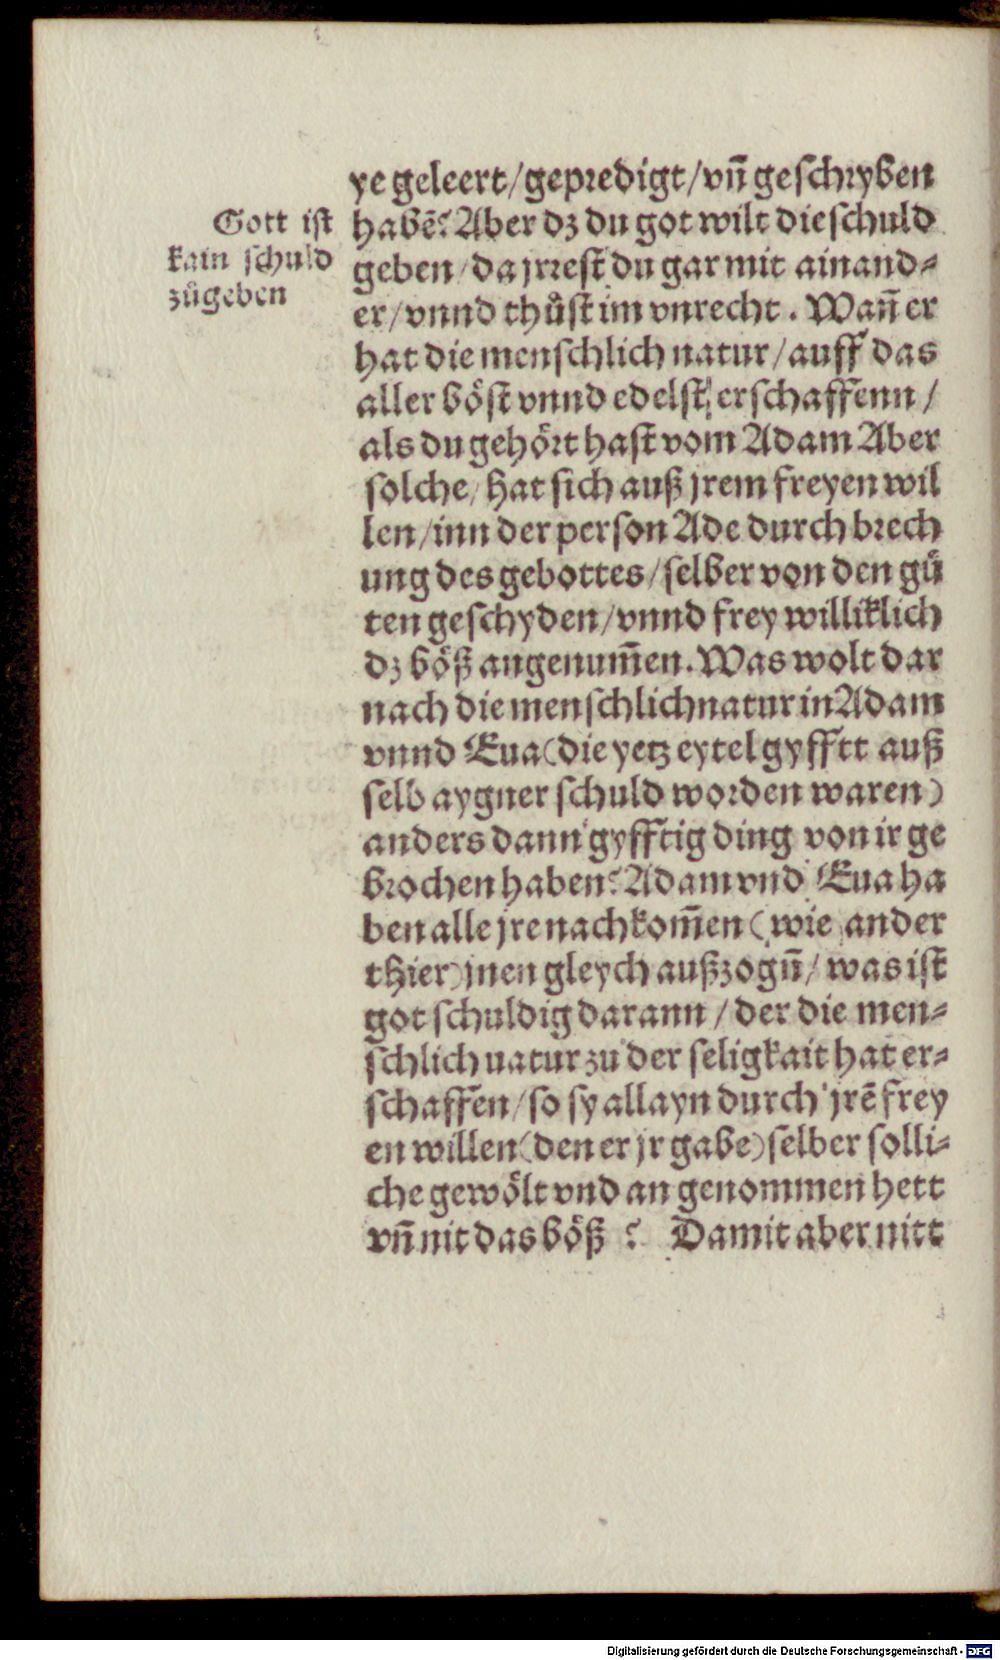 Gott ist
kain schuld
zůgeben
ye geleert/gepredigt/vn̄ geschryben
habē? Aber dz du got wilt die schuld
geben/da jrrest du gar mit ainand-
er/vnnd thůst im vnrecht. Wan̄ er
hat die menschlich natur/auff das
aller böst vnnd edelst erschaffenn/
als du gehört hast vom Adam Aber
solche/hat sich auß jrem freyen wil
len/inn der person Ade durch brech
ung des gebottes/selber von den gů
ten geschyden/vnnd frey williklich
dz böß angenum̄en. Was wolt dar
nach die menschlich natur in Adam
vnnd Eua(die yetz eytel gyfftt auß
selb aygner schuld worden waren)
anders dann gyfftig ding von ir ge
brochen haben? Adam vnd Eua ha
ben alle jre nachkom̄en (wie ander
thier)jnen gleych außzogn̄/was ist
got schuldig darann/der die men-
schlich uatur zu der seligkait hat er-
schaffen/so sy allayn durch jrē frey
en willen(den er jr gabe)selber solli-
che gewölt vnd an genommen hett
vn̄ nit das böß ? Damit aber nitt
Digitalisierung gefördert durch die Deutsche Forschungsgemeinschaft - DFG